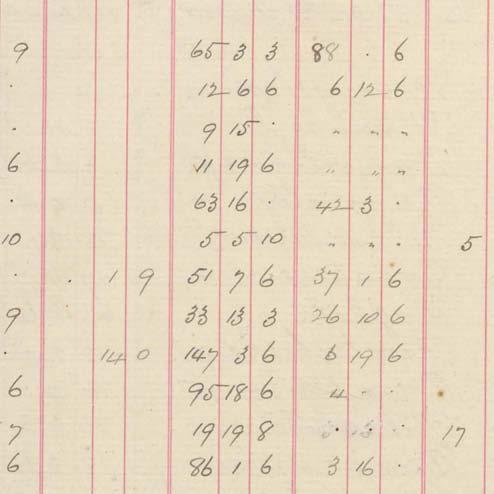 9 65 3 3 88 . 6
. 12 6 6 6 12 6
. 9 15 . " " "
6 11 19 6 " " "
. 63 16 . 42 3 .
10 5 5 10 " " " 5
. . 1 9 51 7 6 37 1 6
9 33 13 3 26 10 6
. 14 0 147 3 6 6 19 6
6 95 18 6 4 . .
7 19 19 8 . 17
6 86 1 6 3 16 .